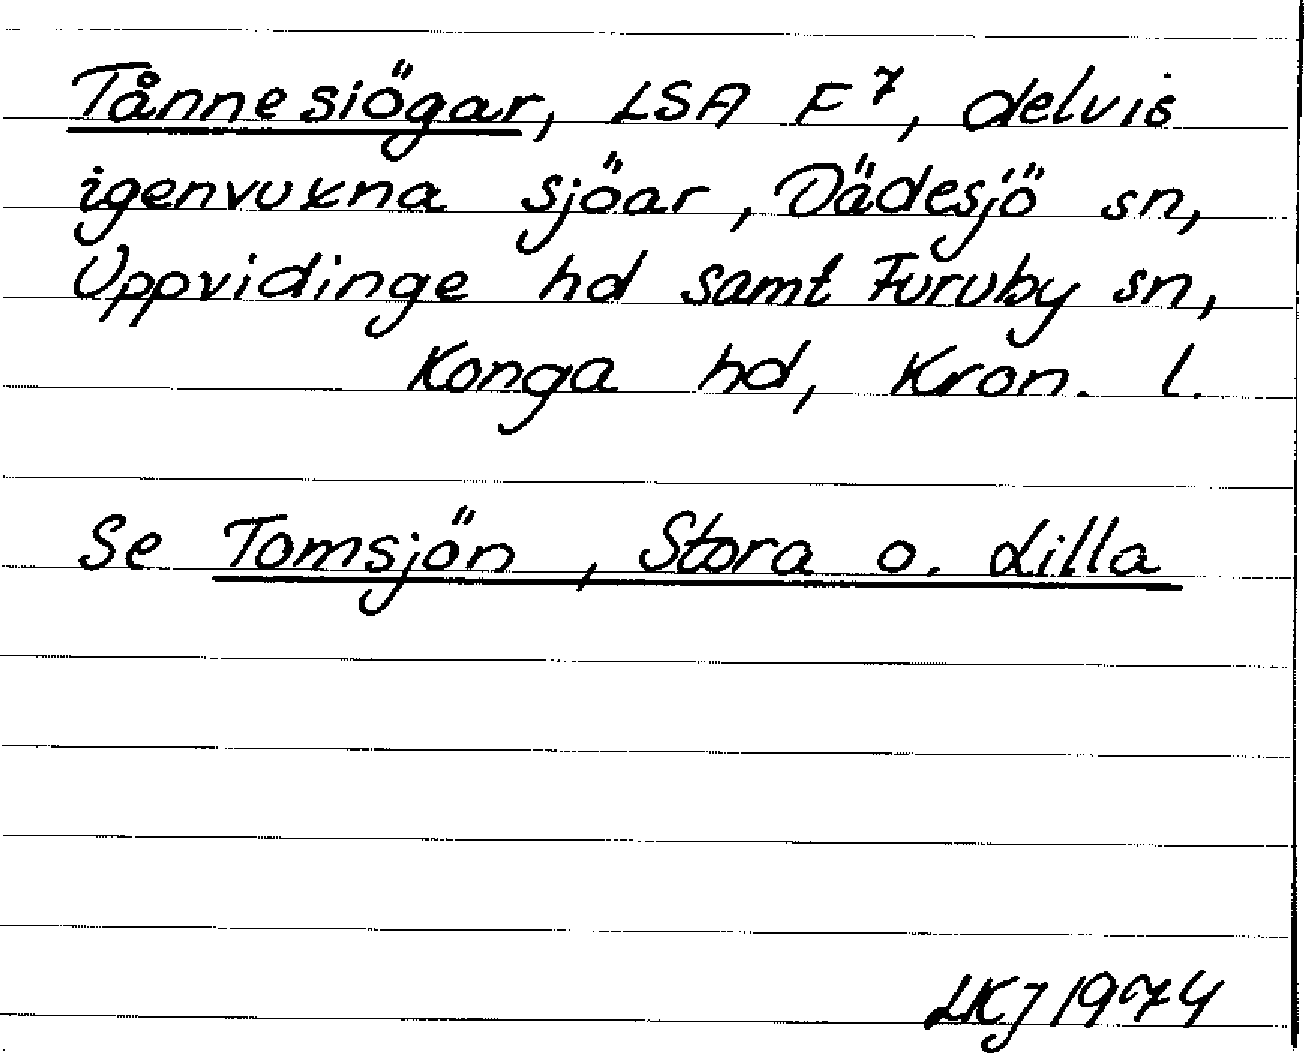 Tånnesiögar, LSA F⁷, delvis
igenvuxna sjöar, Dädesjö sn,
Uppvidinge hd samt Furuby sn,
Konga hd, Kron. l.
Se Tomsjön, Stora o. Lilla
LKJ 1974